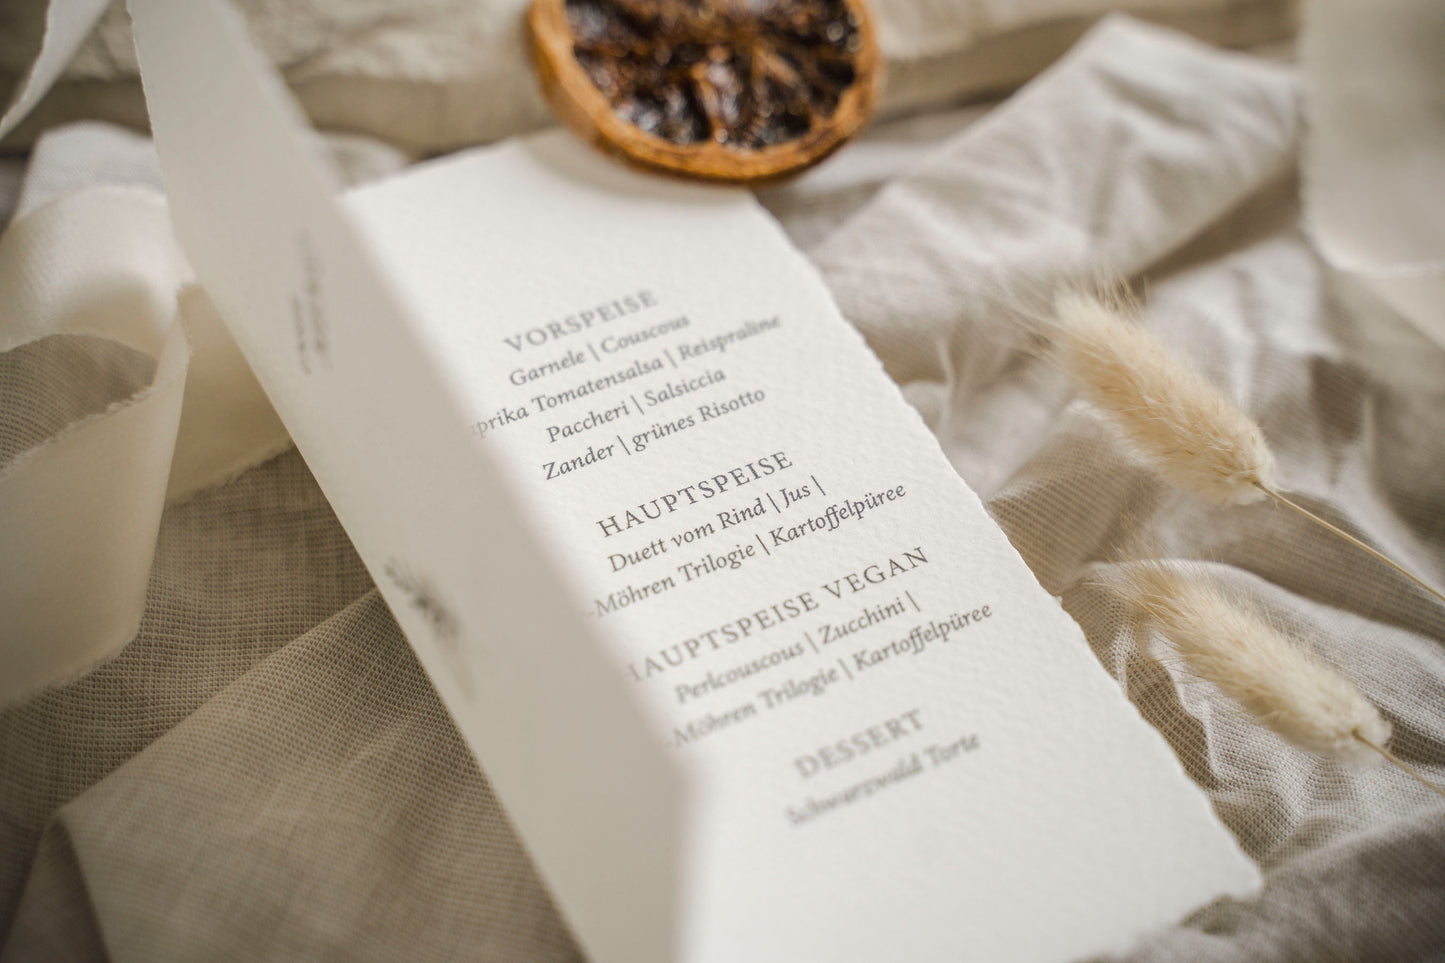 VORSPEISE
Garnele | Couscous
aprika Tomatensalsa | Reispraline
Paccheri | Salsiccia
Zander | grünes Risotto
HAUPTSPEISE
Duett vom Rind | Jus |
-Möhren Trilogie | Kartoffelpüree
HAUPTSPEISE VEGAN
Perlcouscous | Zucchini |
Möhren Trilogie | Kartoffelpüree
DESSERT
Schwarzwald Torte